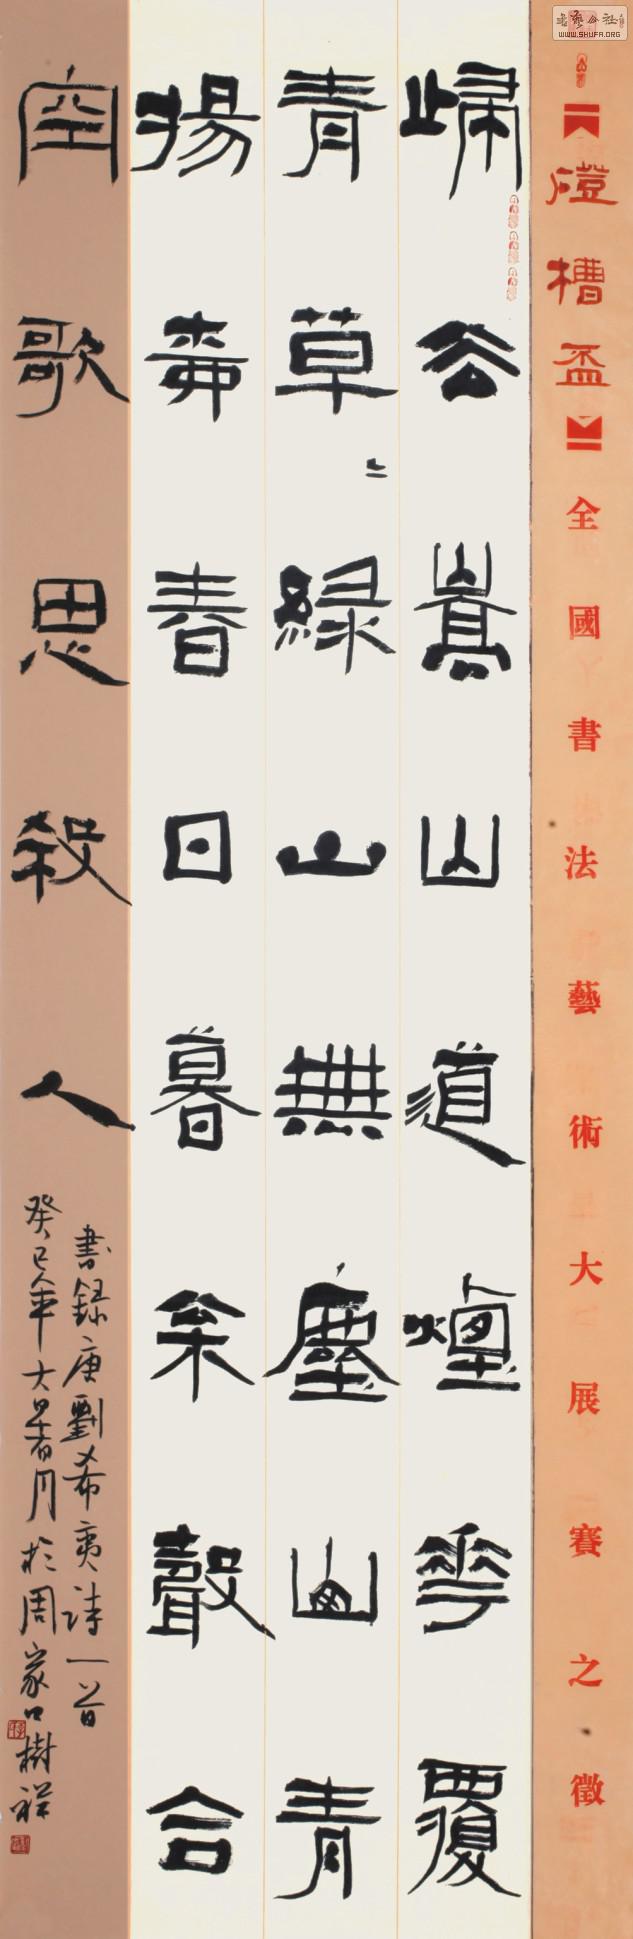 书艺公社
WWW.SHUFA.ORG
【磴槽盃】全國書法藝術大展賽之徵
歸去嵩山道煙花覆
青草〻綠山無塵山青
揚柳春日暮松聲合
空歌思殺人
書録唐劉希夷詩一首
癸巳年大暑月於周家口樹祥